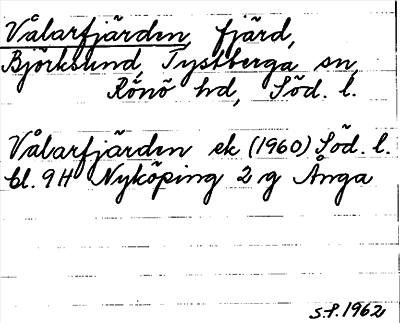 Vålarfjärden, fjärd,
Björksund, Tystberga sn,
Rönö hd, Söd. l.
Vålarfjärden ek (1960) Söd. l.
bl. 9H Nyköping 2 g Ånga
s.f. 1962